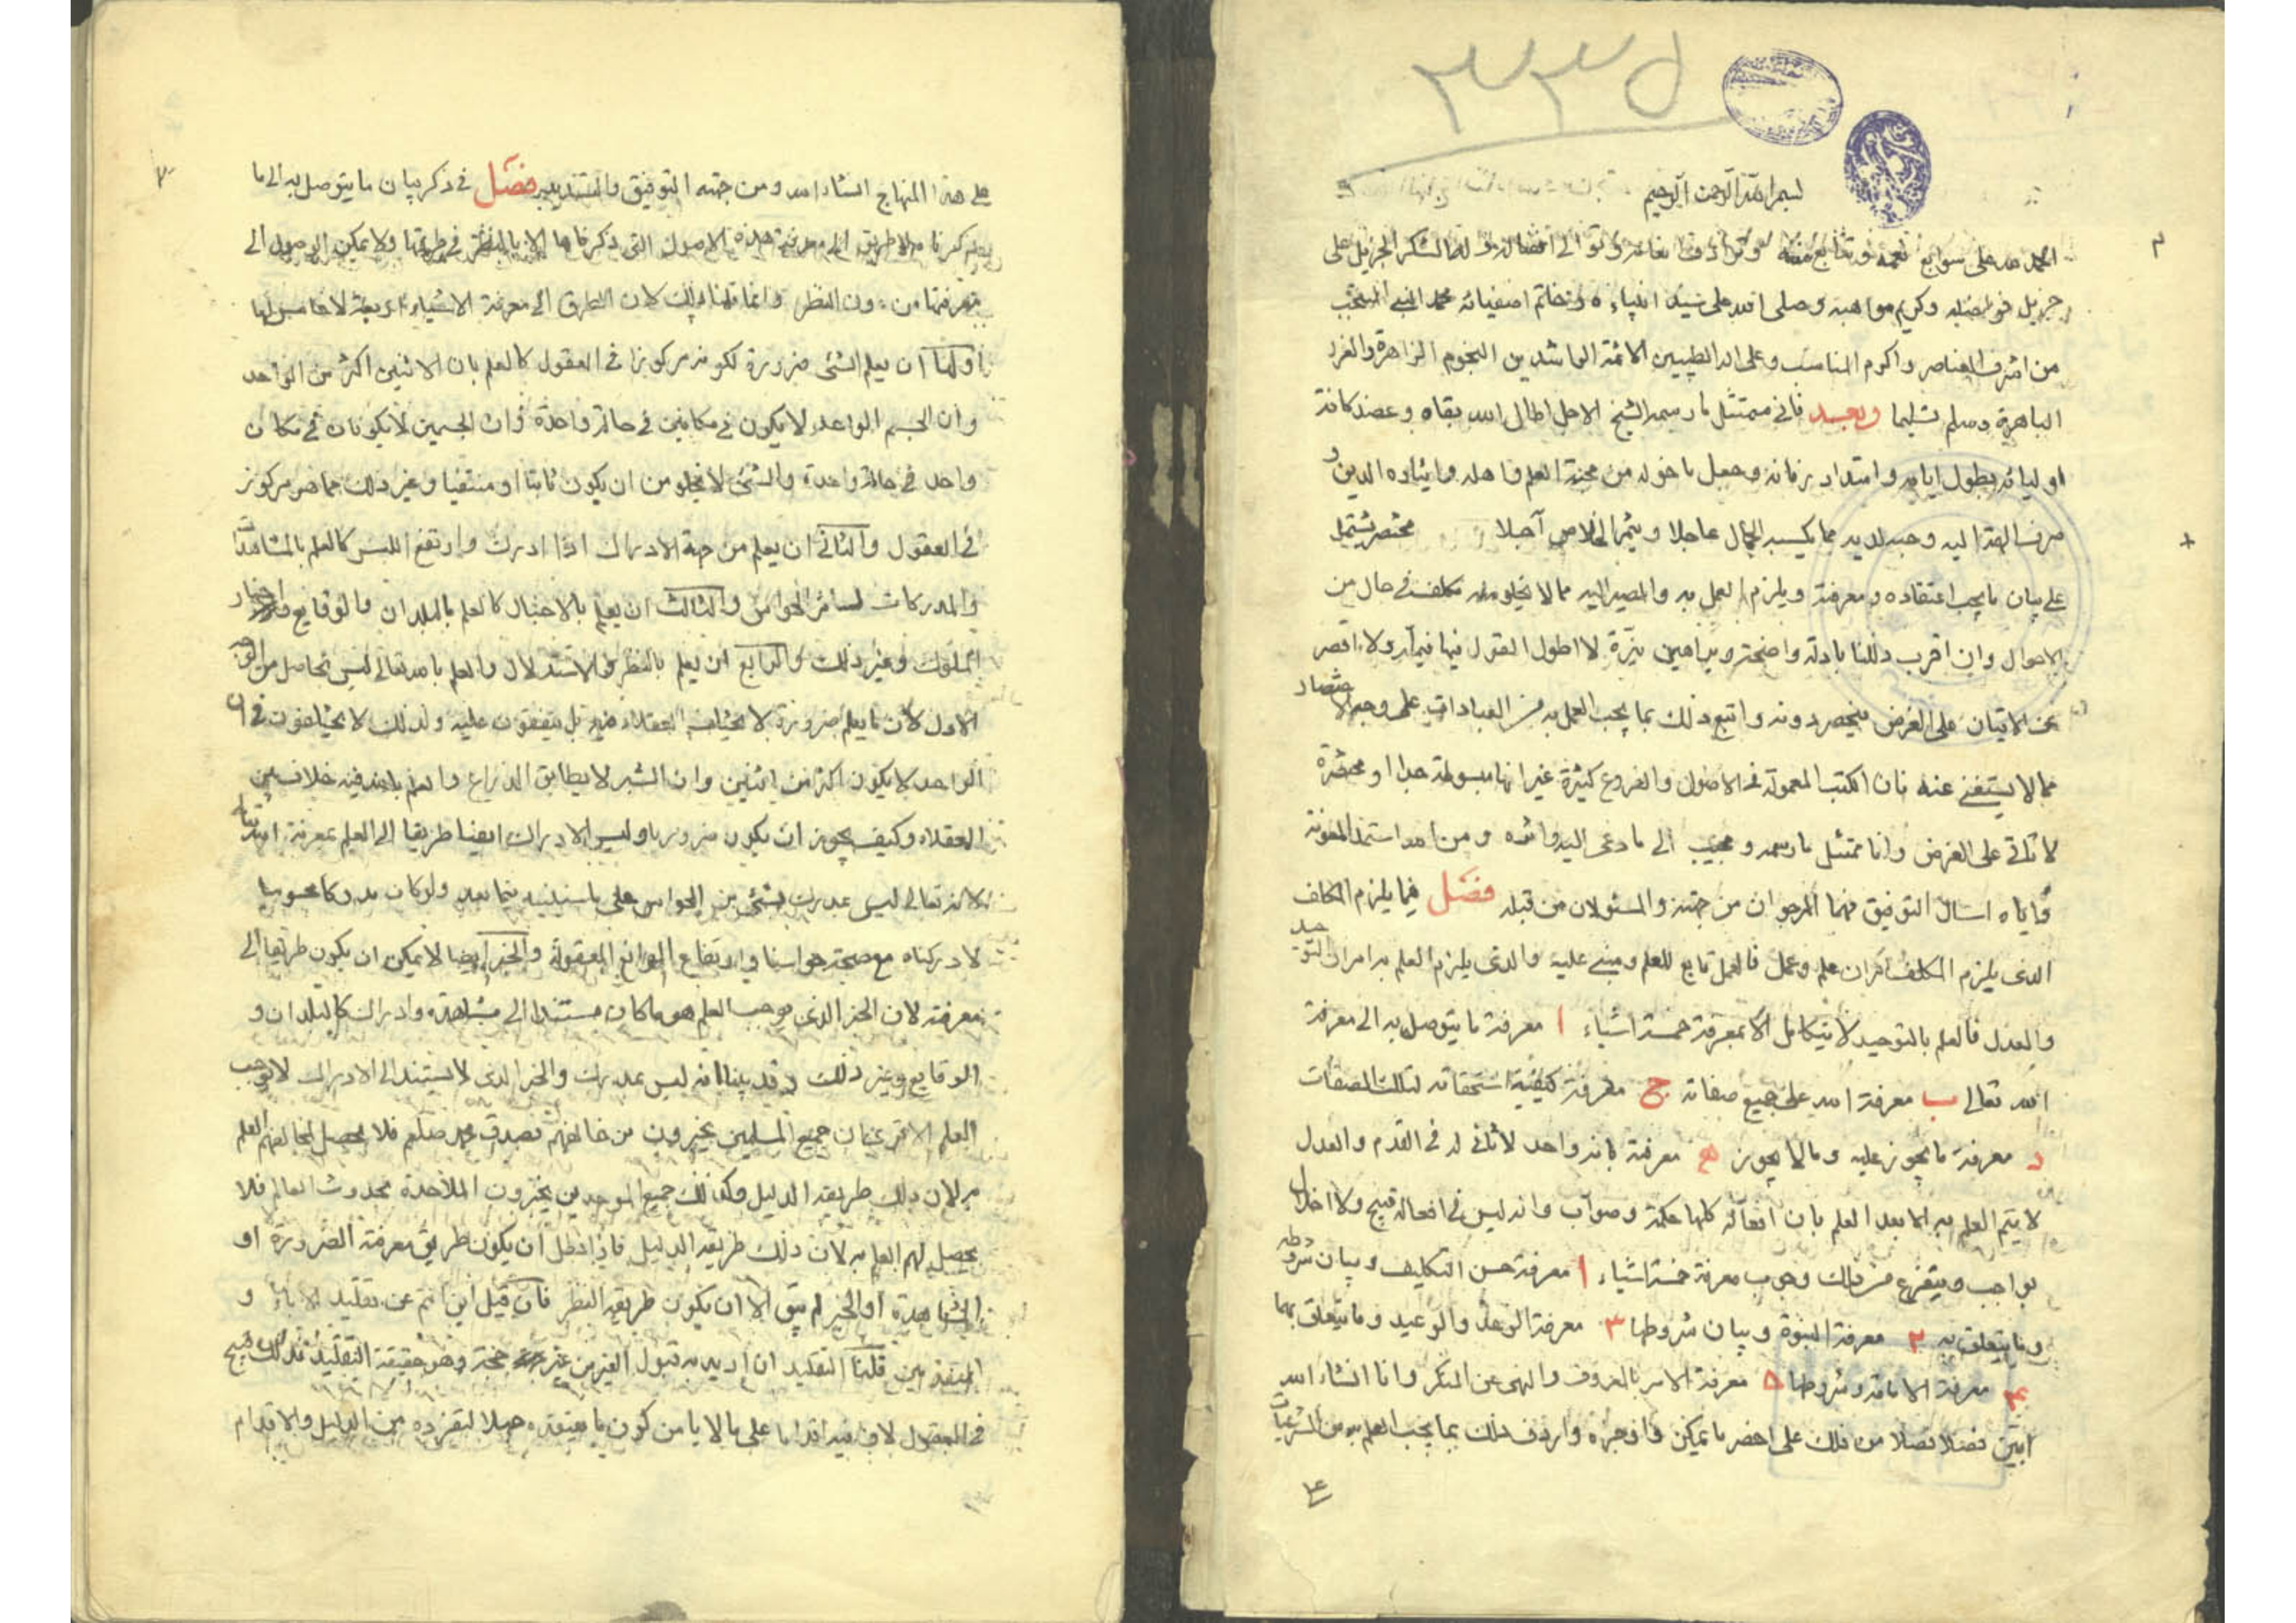 ٣٣٥
بسم الله الرحمن الرحيم
الحمد لله على سوابغ نعمه وتتابع مننه وترادف نعامه وتوالى افضاله وله الشكر الجزيل على
جزيل فواضله وكريم مواهبه وصلى الله على سيد انبياءه وخاتم اصفيائه محمد النبى المنتجب
من اشرف العناصر واكرم المناسب وعلى اله الطيبين الائمة الراشدين النجوم الزاهرة والغرر
الباهرة وسلم تسليما وبعد فانى ممتثل ما رسمه الشيخ الاجل اطال الله بقاه وعضد كافة
اوليائه بطول ايامه وامتداد زمانه وجعل ما خوله من محبة العلم واهله وايثاره الدين و
صرف الهمة اليه وحبب لديه مما يكسبه الجمال عاجلا ويثمر الخلاص آجلا مختصر يشتمل
على بيان ما يجب اعتقاده ومعرفة ويلزم العمل به والمصير اليه مما لا يخلو منه مكلف فى حال من
الاحوال وان اقرب ذلك بادلة واضحة وبراهين نيرة لا اطول القول فيها فيمل ولا اقصر
عن الاتيان على الغرض فيحصر دونه واتبع ذلك بما يجب العمل به من العبادات على وجه الاختصار
مما لا يستغنى عنه فان الكتب المعمولة فى الاصول والفروع كثيرة غير انها مبسوطة جدا او مختصرة
لا تاتى على الغرض وانا ممتثل ما رسمه ومجيب الى ما دعى اليه وانشده ومن الله استمد المعونة
واياه اسال التوفيق فهما المرجوان من جهته والمسئولان من قبله فصل فيما يلزم المكلف
الذى يلزم المكلف امران علم وعمل فالعمل تابع للعلم ومبنى عليه والذى يلزم العلم به امران التوحيد
والعدل فالعلم بالتوحيد لا يتكامل الا بمعرفة خمسة اشياء ا معرفة ما يتوصل به الى معرفة
الله تعالى ب معرفة الله على جميع صفاته ج معرفة كيفية استحقاقه لتلك الصفات
د معرفة ما يجوز عليه وما لا يجوز ه معرفة بانه واحد لا ثانى له فى القدم والعدل
لا يتم العلم به الا بعد العلم بان افعاله كلها حكمة وصواب وانه ليس فى افعاله قبيح ولا اخلال
بواجب ويتفرع من ذلك وجوب معرفة خمسة اشياء ا معرفة حسن التكليف وبيان شروطه
وما يتعلق به ٢ معرفة النبوة وبيان شروطها ٣ معرفة الوعد والوعيد وما يتعلق بهما
۴ معرفة الامامة وشروطها ۵ معرفة الامر بالمعروف والنهى عن المنكر وانا انشاء الله
ابين فصلا فصلا من ذلك على اخصر ما يمكن واوجزه واردف ذلك بما يجب العلم به من الشرعيات
على هذا المنهاج انشاء الله ومن جهته التوفيق والتسديد فصل فى ذكر بيان ما يتوصل به الى ما
ذكرنا لا طريق الى معرفة هذه الاصول التى ذكرناها الا بالنظر فى طريقها ولا يمكن الوصول الى
معرفتها من دون النظر وانما قلنا ذلك لان الطرق الى معرفة الاشياء اربعة لا خامس لها
اولها ان يعلم الشئ ضرورة لكونه مركوزا فى العقول كالعلم بان الاثنين اكثر من الواحد
وان الجسم الواحد لا يكون فى مكانين فى حالة واحدة وان الجسمين لا يكونان فى مكان
واحد فى حالة واحدة والشئ لا يخلو من ان يكون ثابتا او منتفيا وغير ذلك مما هو مركوز
فى العقول والثانى ان يعلم من جهة الادراك اذا ادرك وارتفع اللبس كالعلم بالمشاهدات
والمدركات لسائر الحواس والثالث ان يعلم بالاخبار كالعلم بالبلدان والوقايع واخبار
الملوك وغير ذلك والرابع ان يعلم بالنظر والاستدلال والعلم بالله تعالى ليس بحاصل من الوجه
الاول لان ما يعلم ضرورة لا يختلف العقلاء فيه بل يتفقون عليه ولذلك لا يختلفون فى ان
الواحد لا يكون اكثر من اثنين وان الشبر لا يطابق الذراع والعلم بالله فيه خلاف بين
العقلاء وكيف يجوز ان يكون ضروريا وليس الادراك ايضا طريقا الى العلم بمعرفة الله تعالى
لانه تعالى ليس بمدرك بشئ من الحواس على ما سنبينه فيما بعد ولو كان مدركا محسوسا
لادركناه مع صحة حواسنا وارتفاع الموانع المعقولة والخبر ايضا لا يمكن ان يكون طريقا الى
معرفته لان الخبر الذى يوجب العلم هو ما كان مستندا الى مشاهدة وادراك كالبلدان و
الوقايع وغير ذلك وقد بينا انه ليس بمدرك والخبر الذى لا يستند الى الادراك لا يوجب
العلم الا ترى ان جميع المسلمين يخبرون من خالفهم بصدق محمد صلعم فلا يحصل لمخالفهم العلم
به لان ذلك طريقه الدليل وكذلك جميع الموحدين يخبرون الملاحدة بحدوث العالم فلا
يحصل لهم العلم به لان ذلك طريقه الدليل فاذا بطل ان يكون طريق معرفة الضرورة او
المشاهدة او الخبر لم يبق الا ان يكون طريقه النظر فان قيل اين انتم عن تقليد الاباء و
المتقدمين قلنا التقليد ان اريد به قبول الغير من غير حجة وهو حقيقة التقليد فذلك قبيح
فى العقول لان فيه اقداما على ما لا يامن كون ما يعتقده جهلا لتعريه من الدليل والاقدام